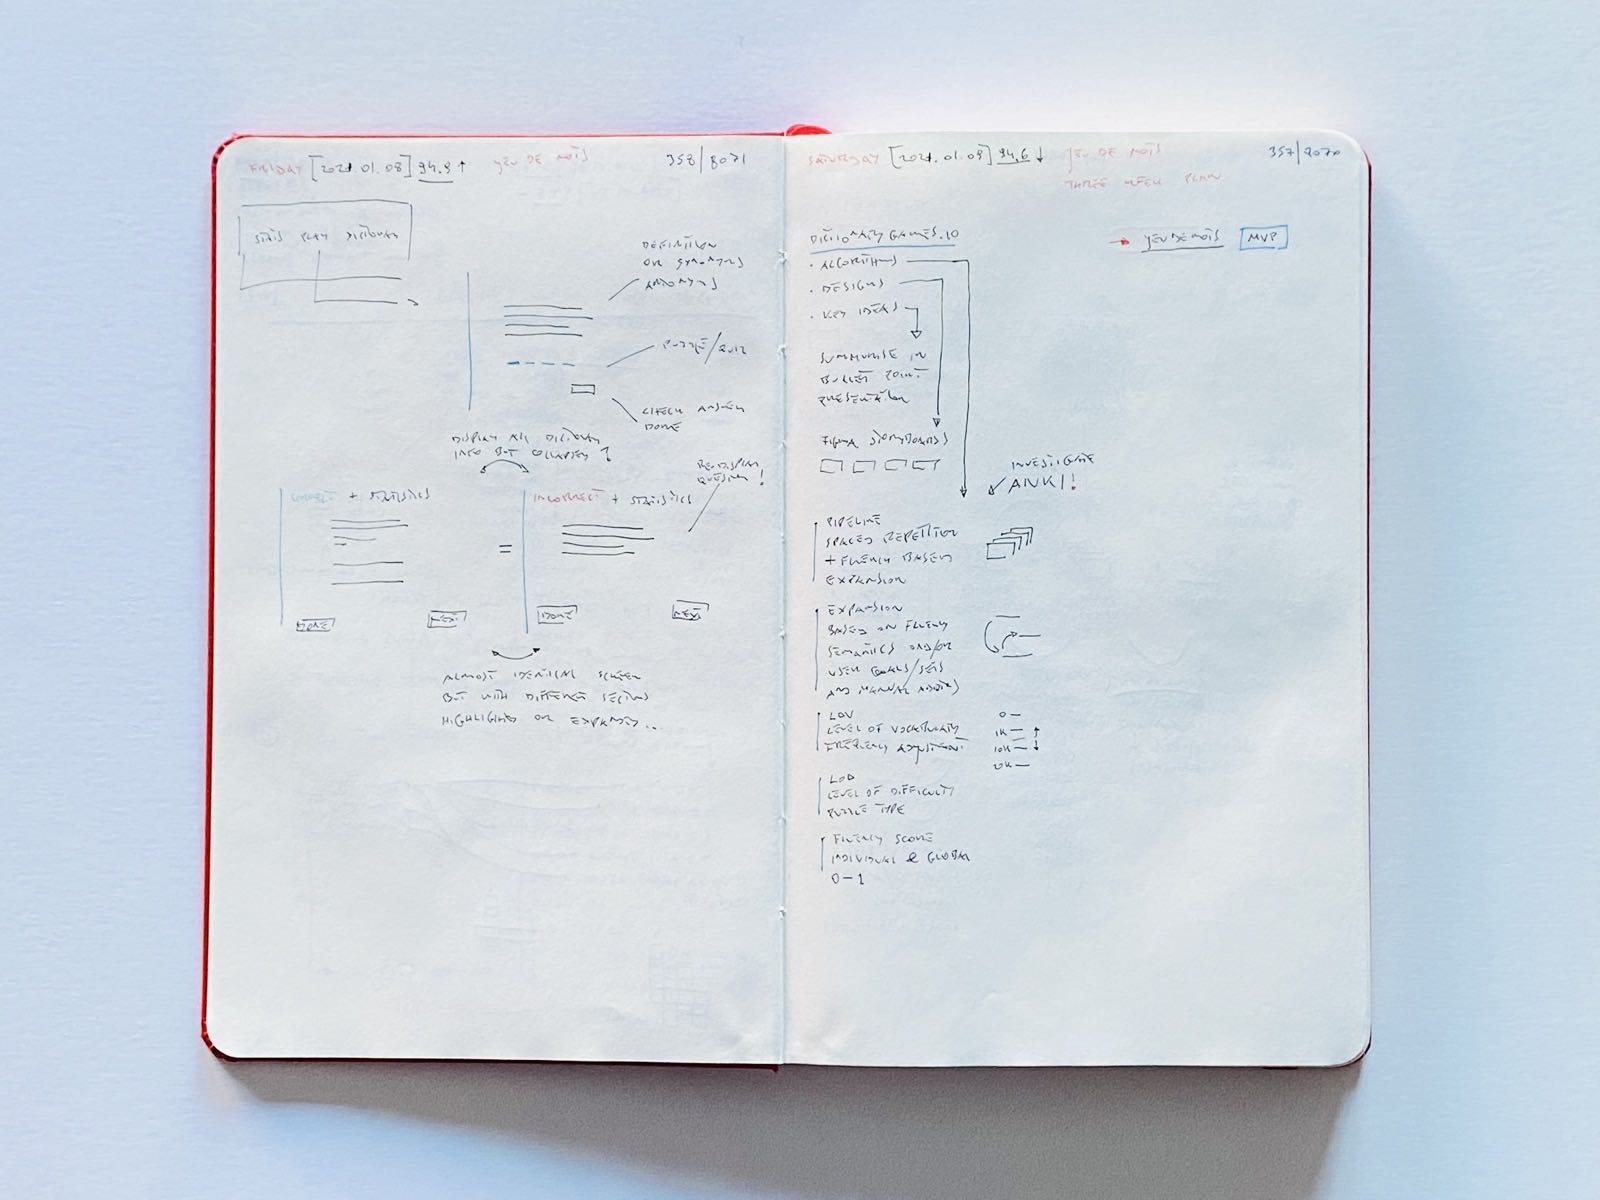 FRIDAY [2021.01.08] 94.9↑ JEU DE MOTS 358/8071
STATS PLAY DICTIONARY
DEFINITION
OR SYNONYMS
ANTONYMS
PUZZLE/QUIZ
CHECK ANSWER
DONE
DISPLAY ALL DICTIONARY
INFO BUT COLLAPSED?
REDISPLAY
QUESTION!
CORRECT + STATISTICS
INCORRECT + STATISTICS
=
DONE NEXT DONE NEXT
ALMOST IDENTICAL SCREEN
BUT WITH DIFFERENT SECTIONS
HIGHLIGHTED OR EXPANDED...
SATURDAY [2021.01.09] 94.6↓ JEU DE MOTS 357/8070
THREE WEEK PLAN
DICTIONARY GAMES.IO → JEU DE MOTS MVP
• ALGORITHMS
• DESIGNS
• KEY IDEAS
SUMMARISE IN
BULLET POINT
PRESENTATION
FIGMA STORYBOARDS
INVESTIGATE
ANKI!
PIPELINE
SPACED REPETITION
+ FLUENCY BASED
EXPANSION
EXPANSION
BASED ON FLUENCY
SEMANTICS AND/OR
USER GOALS/SETS
AND MANUAL ADDS
LOV
LEVEL OF VOCABULARY
FREQUENCY ADJUSTMENT
0 —
1K —
10K —
20K —
LOD
LEVEL OF DIFFICULTY
PUZZLE TYPE
FLUENCY SCORE
INDIVIDUAL & GLOBAL
0–1